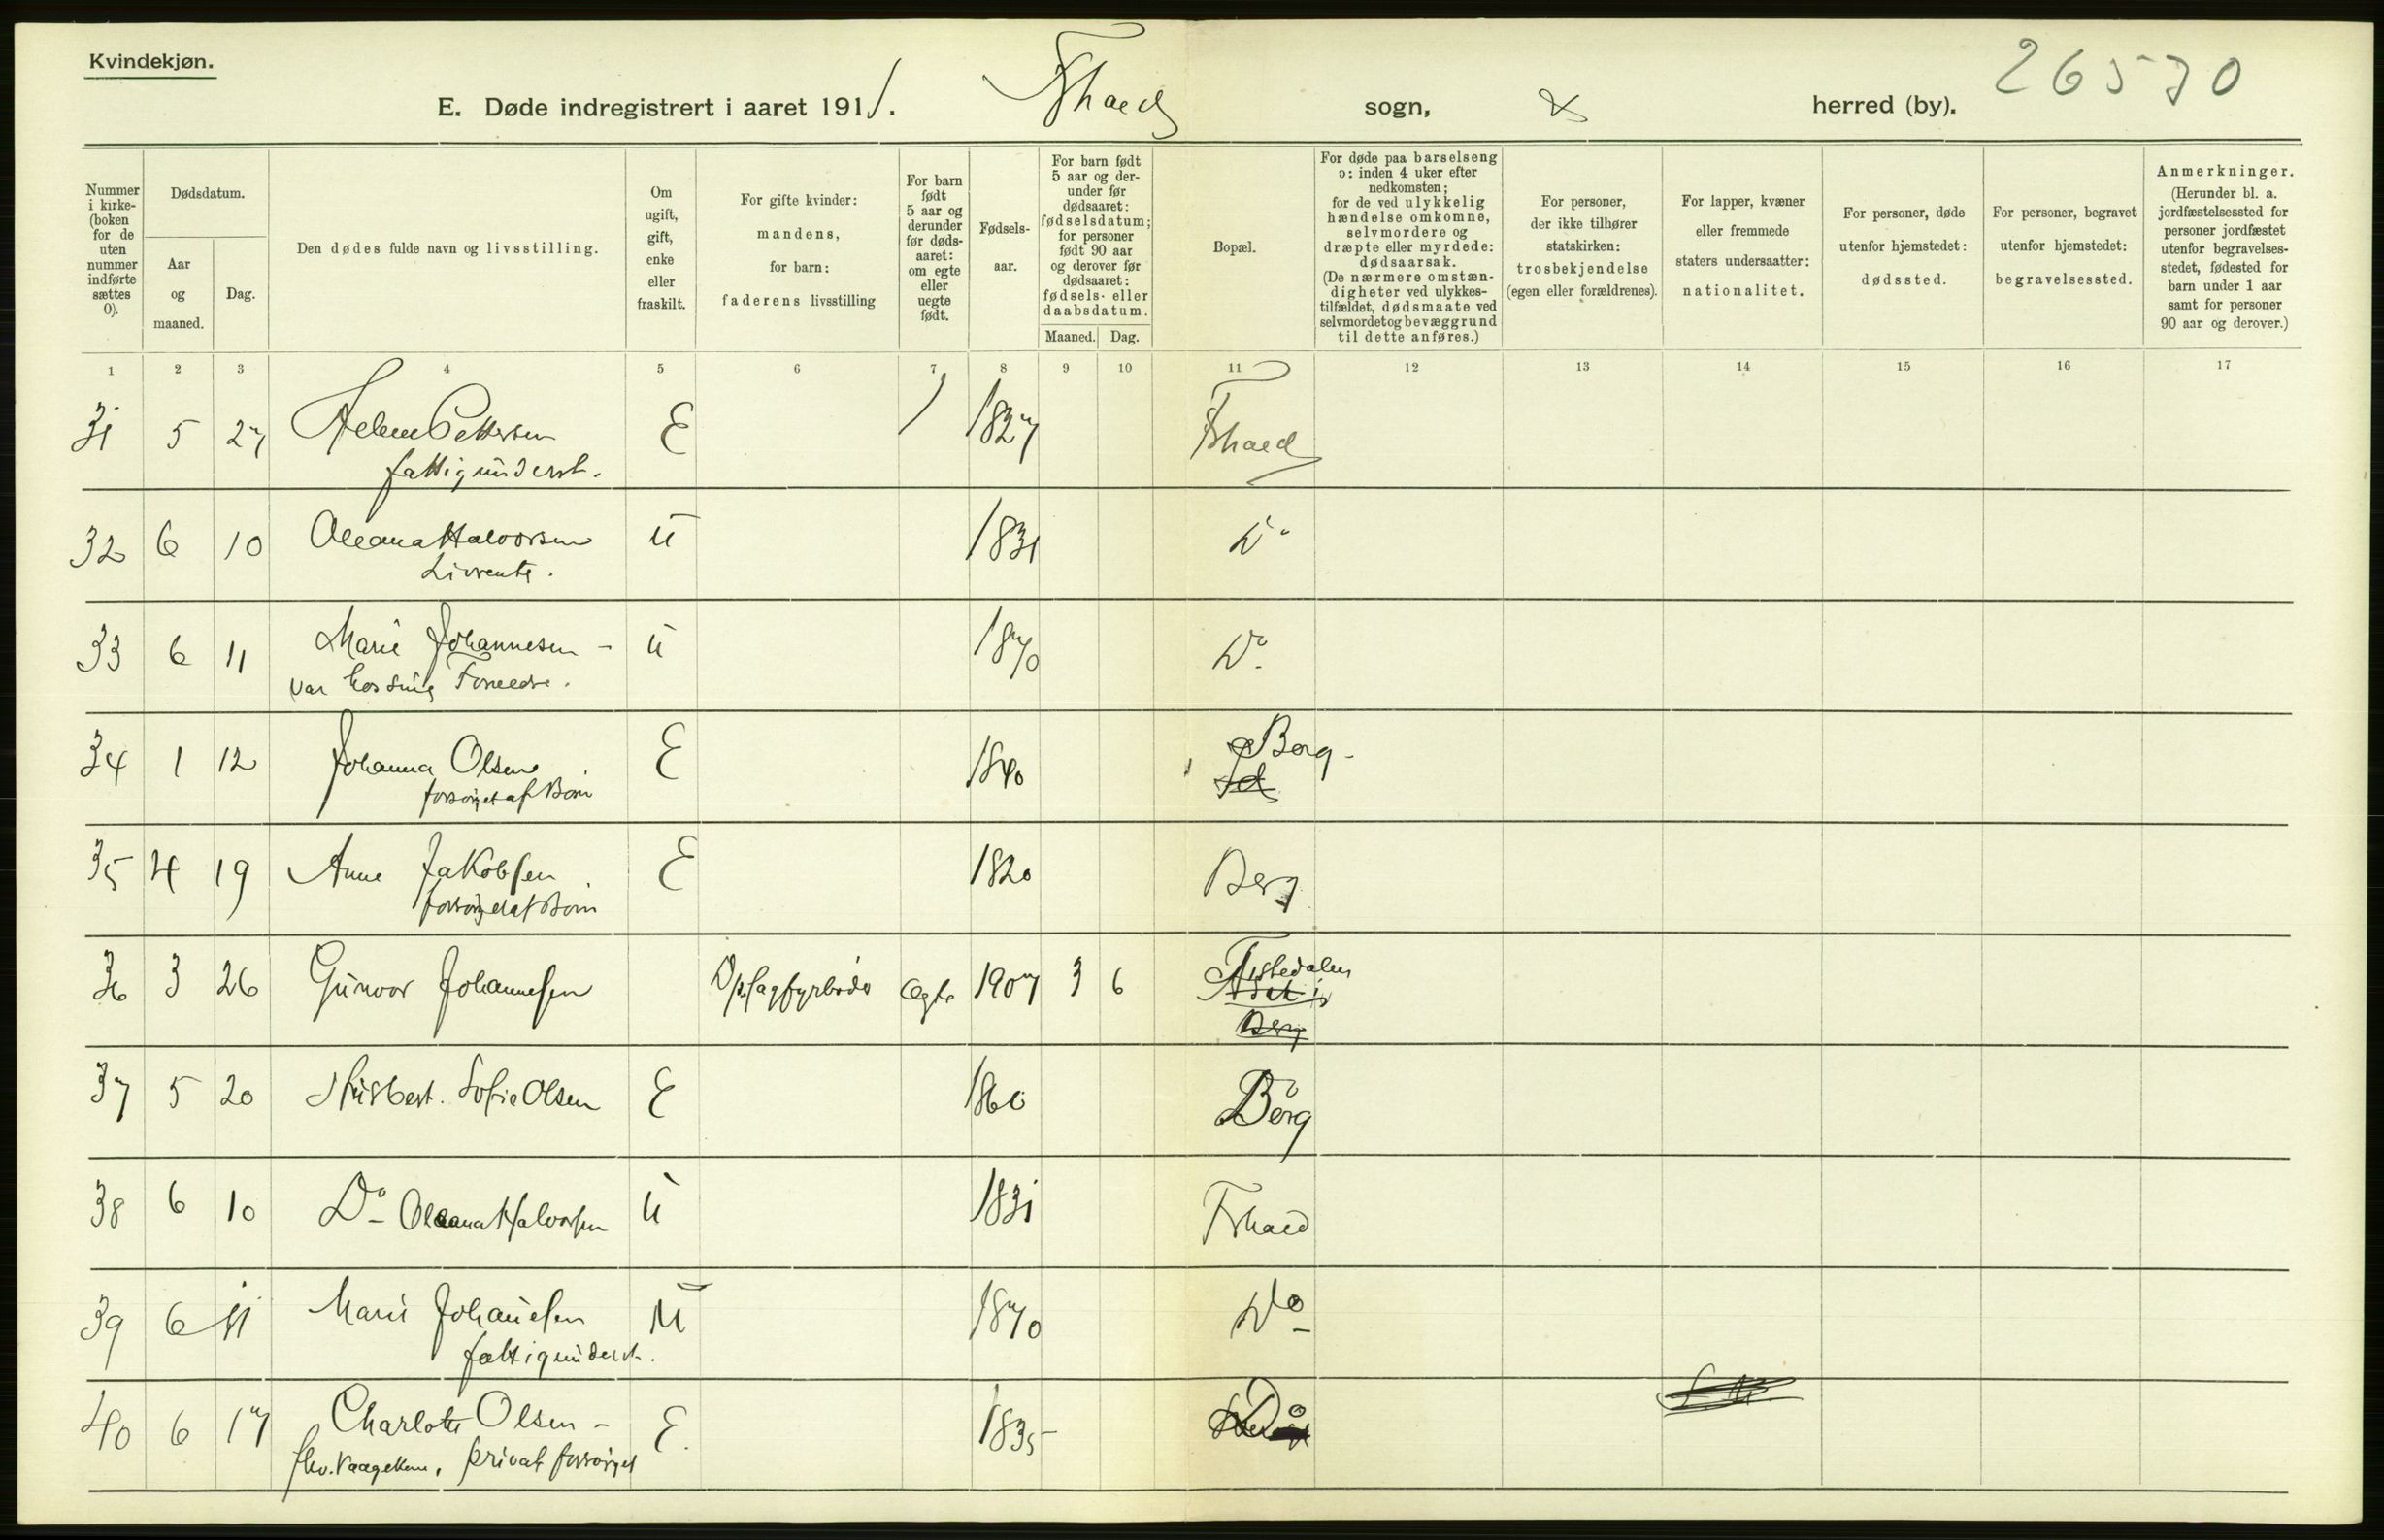 Kvindekjøn.
26570
E. Døde indregistrert i aaret 1911. Fshald sogn, herred (by).
Nummer i kirke- (boken for de uten nummer indførte sættes 0).
Dødsdatum.
Aar og maaned.
Dag.
Den dødes fulde navn og livsstilling.
Om ugift, gift, enke eller fraskilt.
For gifte kvinder: mandens, for barn: faderens livsstilling
For barn født 5 aar og derunder før døds- aaret: om egte eller uegte født.
Fødsels- aar.
For barn født 5 aar og der- under før dødsaaret: fødselsdatum; for personer født 90 aar og derover før dødsaaret: fødsels- eller daabsdatum.
Maaned. Dag.
Bopæl.
For døde paa barselseng ɔ: inden 4 uker efter nedkomsten; for de ved ulykkelig hændelse omkomne, selvmordere og dræpte eller myrdede: dødsaarsak. (De nærmere omstæn- digheter ved ulykkes- tilfældet, dødsmaate ved selvmord og bevæggrund til dette anføres.)
For personer, der ikke tilhører statskirken: trosbekjendelse (egen eller forældrenes).
For lapper, kvæner eller fremmede staters undersaatter: nationalitet.
For personer, døde utenfor hjemstedet: dødssted.
For personer, begravet utenfor hjemstedet: begravelsessted.
Anmerkninger. (Herunder bl. a. jordfæstelsessted for personer jordfæstet utenfor begravelses- stedet, fødested for barn under 1 aar samt for personer 90 aar og derover.)
1 2 3 4 5 6 7 8 9 10 11 12 13 14 15 16 17
31 5 27 Helene Pettersen E 1827 Fshald
fattigunderst.
32 6 10 Oleana Halvorsen u 1831 Do
Livrente.
33 6 11 Marie Johannesen - u 1870 Do
var hos sine Foreldre.
34 1 12 Johanna Olsen E 1840 Berg -
forsørget af Børn
35 4 19 Anne Jakobsen E 1820 Berg
forsørget af Børn
36 3 26 Gunvor Johannesen Dp.sagfyrbøder Ægte 1907 3 6 Tistedalen
Berg
37 5 20 Husbest. Sofie Olsen E 1860 Berg
38 6 10 Do Oleana Halvorsen u 1831 Fshald
39 6 11 Marie Johanesen u 1870 Do
fattigunderst.
40 6 17 Charlotte Olsen - E. 1835 Do
fhv. Vaagekone, privat forsørget